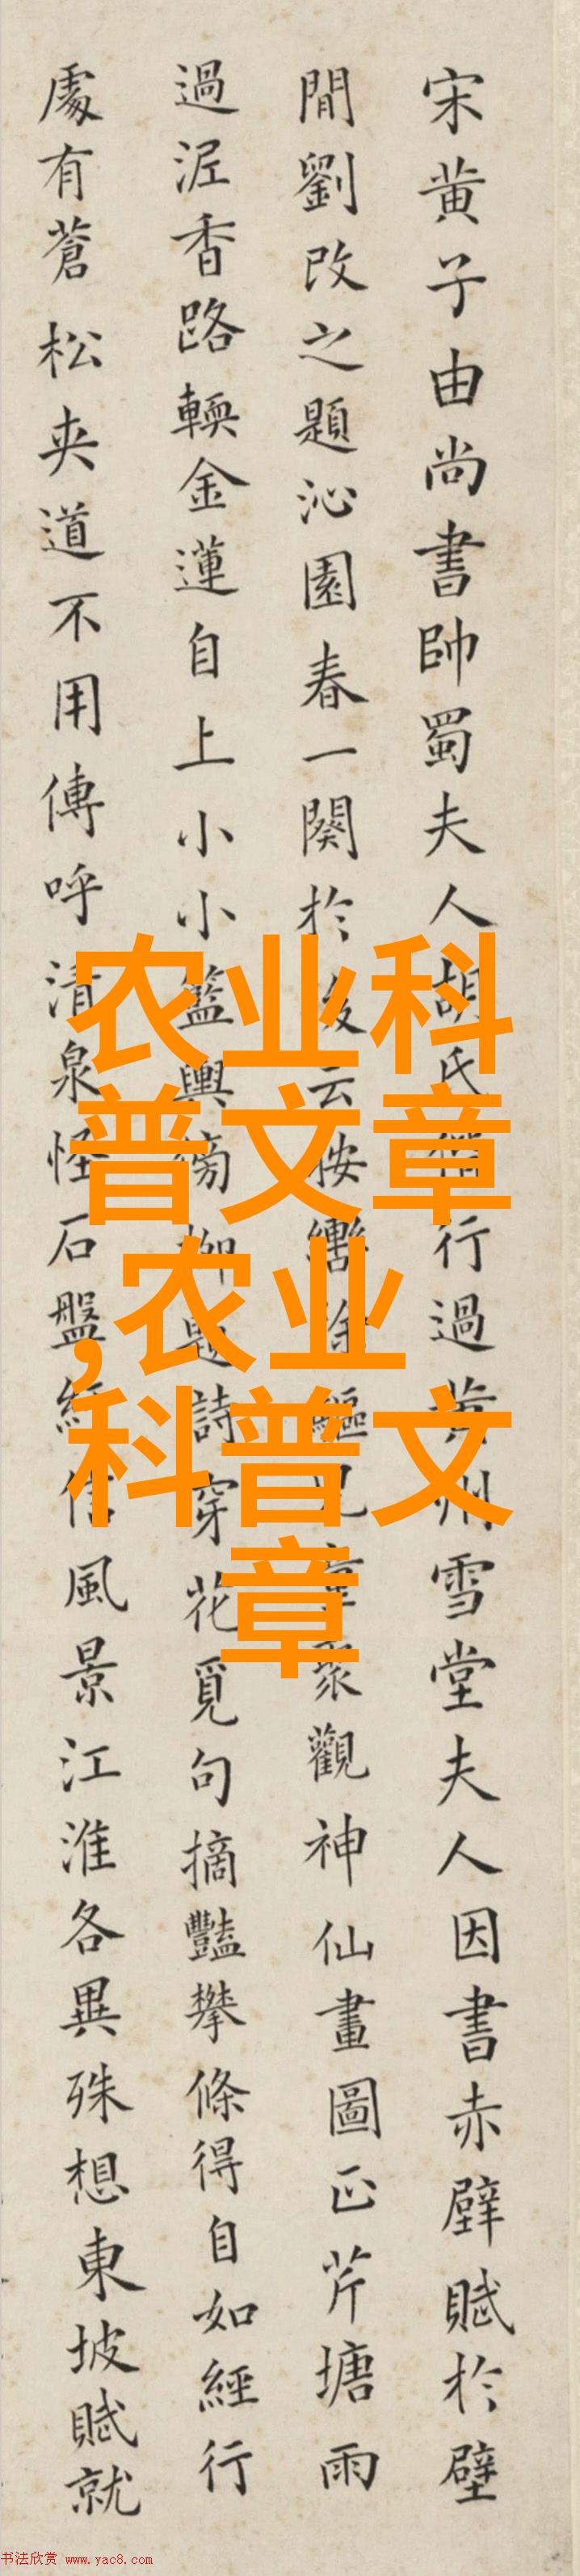 宋黄子由尚書帥蜀夫人胡氏行過黄州雪堂夫人因書赤壁賦於壁
間劉改之題沁園春一闋於後云按轡徐驅兒童聚觀神仙畫圖正芹塘雨
過泥香路輭金蓮自上小小籃輿傍柳題詩穿花覓句摘豔攀條得自如經行
處有蒼松夾道不用傳呼清泉怪石盤紆信風景江淮各異殊想東坡賦就
农业科
普文章
,农业
科普文
章
书法欣赏 www.yac8.com